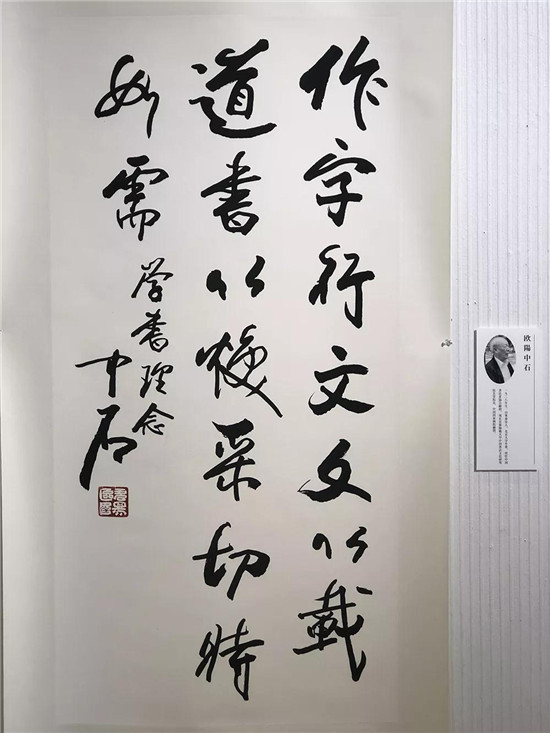 作字行文文以載
道書以焕采切時
如需
学書理念
中石
欧陽中石